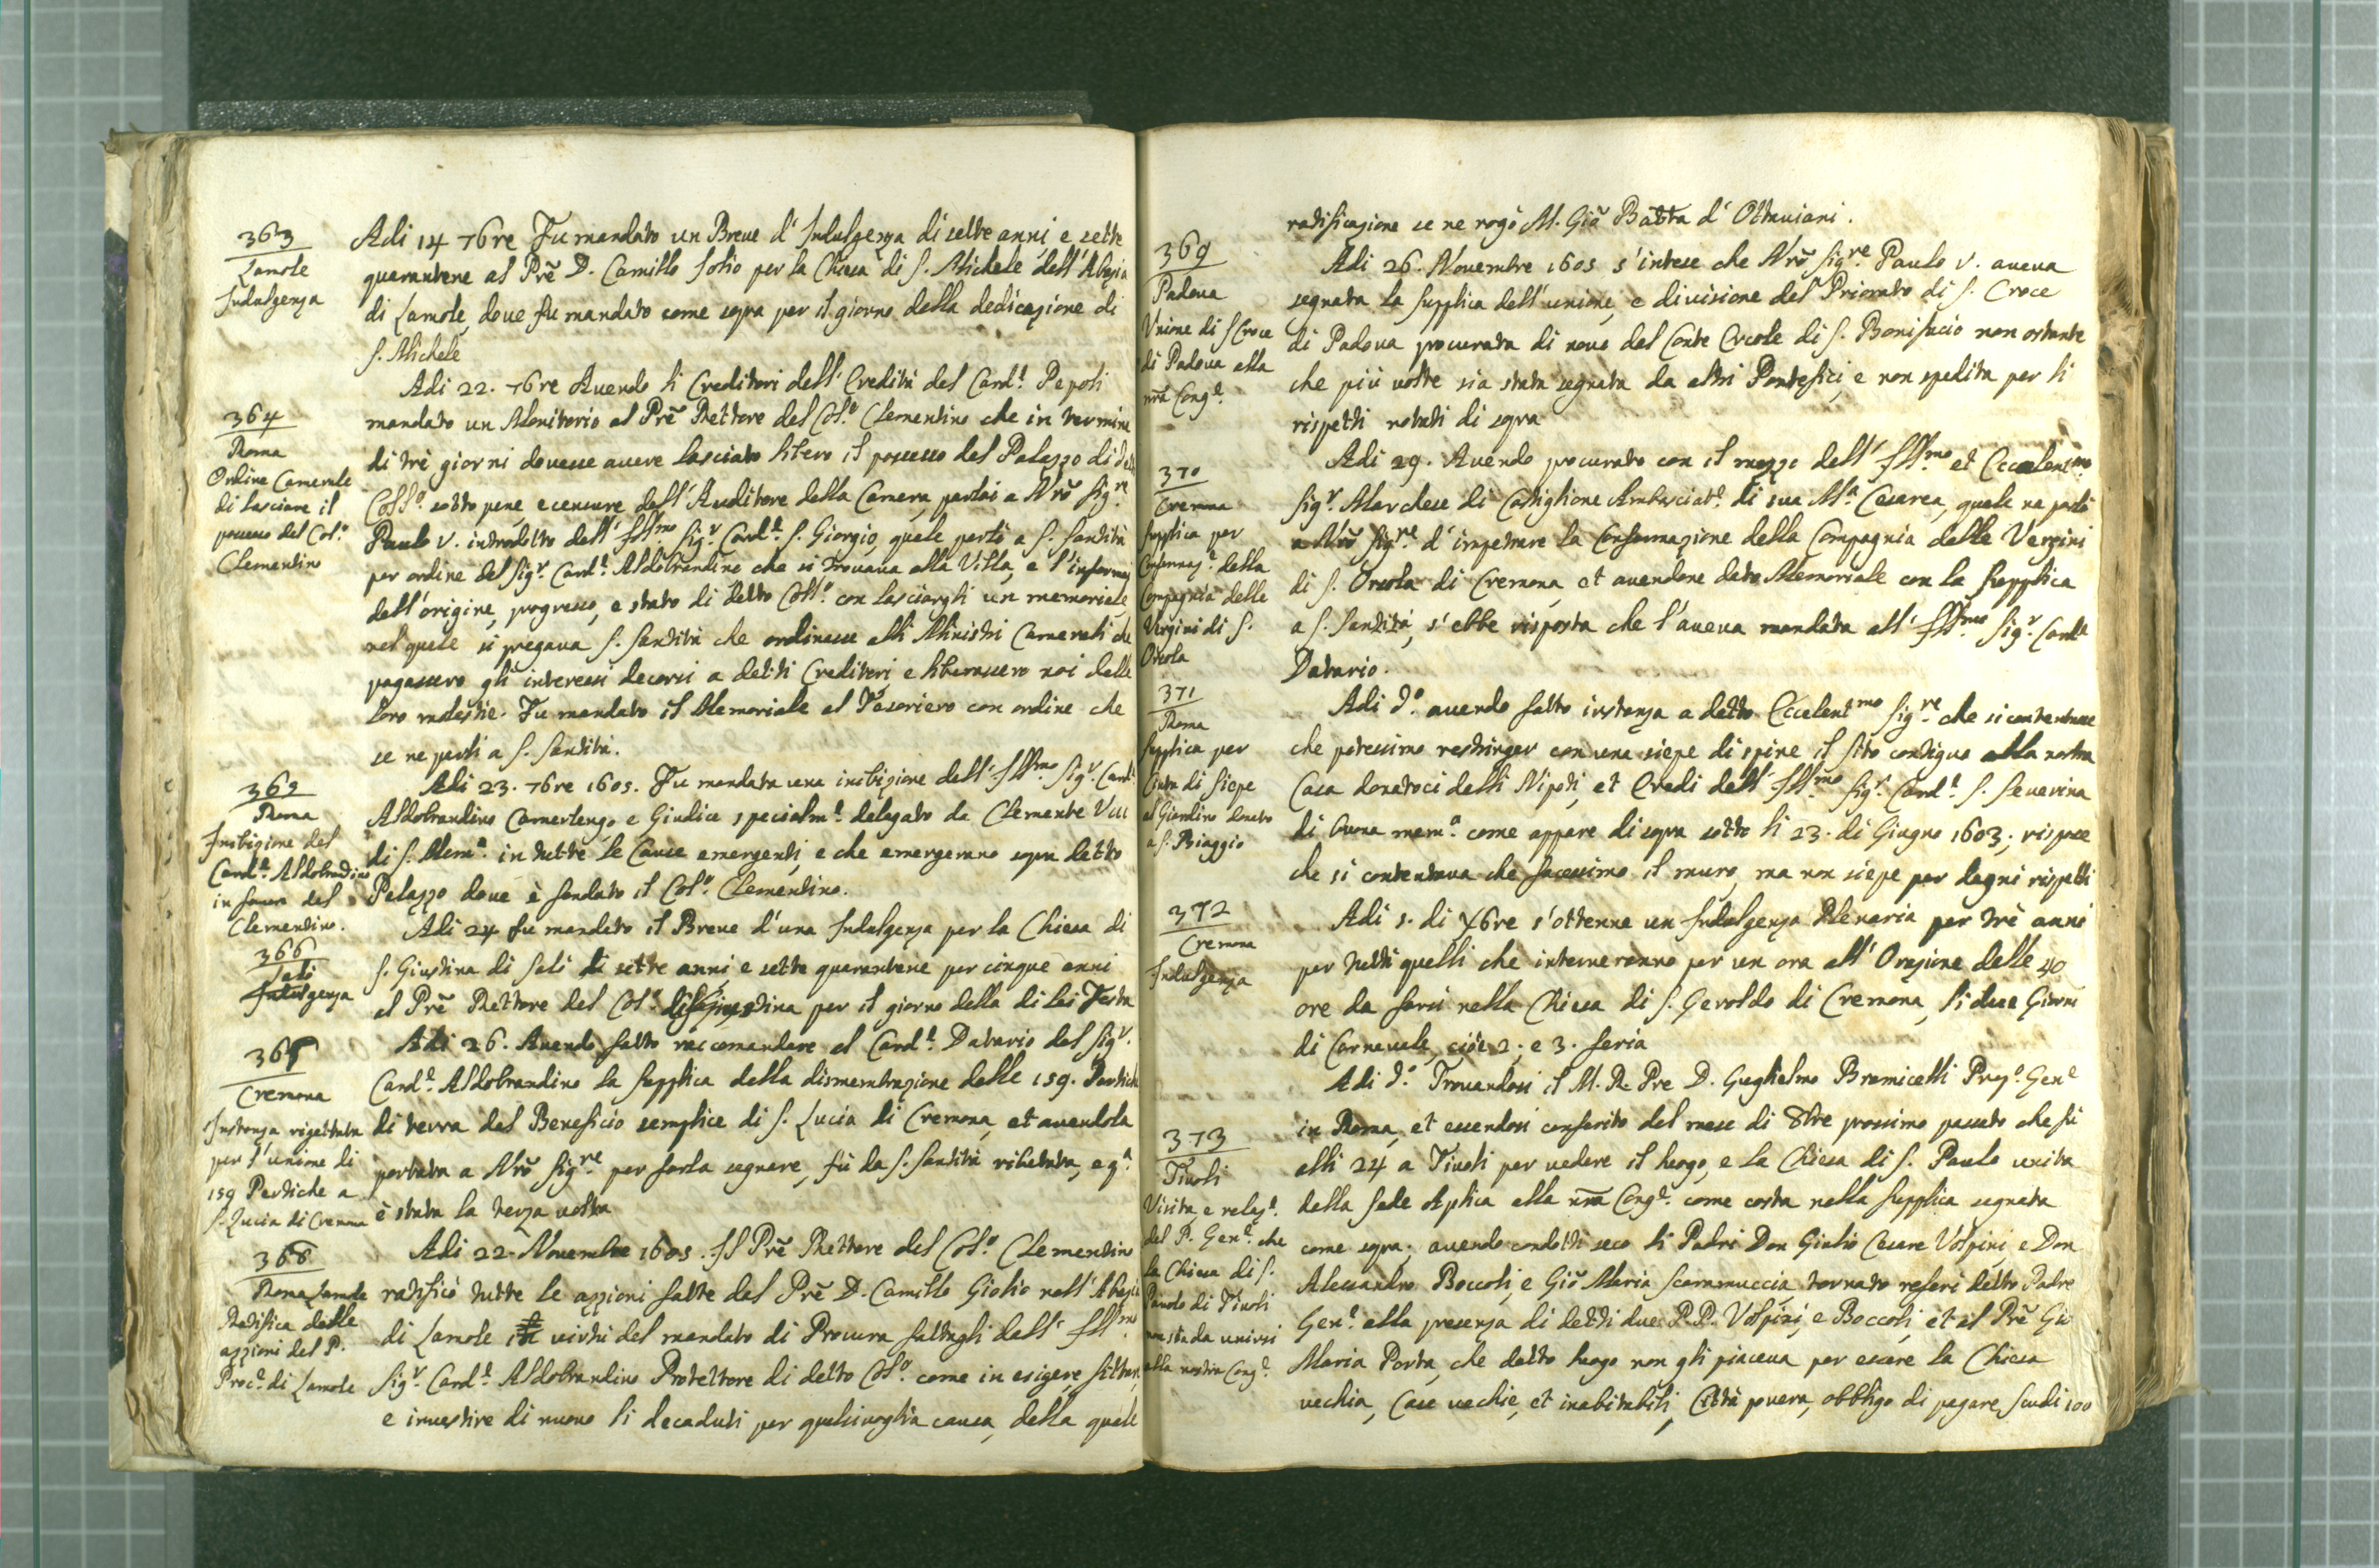 363
Lamole
Indulgenza
Adi 14 76re Fu mandato un Breue d' Indulgenza di sette anni, e sette
quarantene al Prē D. Camillo Folio per la Chiesa di S. Michele dell' Abazia
di Lamole, doue fu mandato come sopra per il giorno della dedicazione di
S. Michele
364
Roma
Ordine Camerale
di lasciare il
possesso del Col.o
Clementino
Adi 22. 76re Auendo li Creditori dell' Eredità del Card.l Pepoli
mandato un Monitorio al Prē Rettore del Col.o Clementino che in termine
di trè giorni douesse auere lasciato libero il possesso del Palazzo di
Coll.o sotto pene, e censure dell' Auditore della Camera, parlai a Nrō Sig.re
Paulo V. introdotto dall' Ill.mo Sig.r Card.l S. Giorgio, quale parlò a S. Santità
per ordine del Sig.r Card.l Aldobrandino che si trouaua alla Villa, e l'informai
dell'origine, progresso, e stato di detto Coll.o con lasciargli un memoriale,
nel quale si pregaua S. Santità che ordinasse alli Ministri Camerali che
pagassero gl'interessi decorsi a detti Creditori, e liberassero noi dalle
loro molestie. Fu mandato il Memoriale al Tesoriero con ordine che
se ne parli a S. Santità.
365
Roma
Inibizione del
Card.l Aldobrandino
in fauore del
Clementino.
Adi 23. 76re 1605. Fu mandata una inibizione dell' Ill.mo Sig.r Card.l
Aldobrandino Camerlengo e Giudice specialm.e delegato da Clemente VIII
di S. Mem.a in tutte le Cause emergenti, e che emergeranno sopra detto
Palazzo doue è fondato il Col.o Clementino.
366
Salò
Indulgenza
Adi 24 fu mandato il Breue d'una Indulgenza per la Chiesa di
S. Giustina di Salò di sette anni, e sette quarantene per cinque anni
al Prē Rettore del Col.o di S. Giustina per il giorno della di lei Festa
367
Cremona
Instanza rigettata
per l'unione di
159 Pertiche a
S. Lucia di Cremona
Adi 26. Auendo fatto raccomandare al Card.l Datario dal Sig.r
Card.l Aldobrandino la supplica della dismembrazione delle 159. Pertiche
di terra del Beneficio semplice di S. Lucia di Cremona, et auendola
portata a Nrō Sig.re per farla segnare, fù da S. Santità ributtata, e q.a
è stata la terza uolta
368
Roma Lamole
Ratifica delle
azzioni del P.
Proc.e di Lamole
Adi 22. Nouembre 1605. Il Prē Rettore del Col.o Clementino
ratificò tutte le azzioni fatte dal Prē D. Camillo Giolio nell' Abazia
di Lamole in uirtù del mandato di Procura fattagli dall' Ill.mo
Sig.r Card.l Aldobrandino Protettore di detto Col.o come in esigere, fittare,
e inuestire di nuouo li decaduti per qualsiuoglia causa, della quale
ratificazione se ne rogò M. Giō Batta d' Ottauiani.
369
Padoua
Vnione di S Croce
di Padoua alla
nrā Cong.e
Adi 26. Nouembre 1605 s'intese che Nrō Sig.re Paulo V. aueua
segnata la supplica dell'unione, e diuisione del Priorato di S. Croce
di Padoua procurata di nouo dal Conte Ercole di S. Bonifacio non ostante
che più uolte sia stata segnata da altri Pontefici, e non spedita per li
rispetti notati di sopra
370
Cremona
Supplica per
Confermaz.e della
Compagnia delle
Vergini di S.
Orsola
Adi 29. Auendo procurato con il mezzo dell' Ill.mo et Eccelent.mo
Sig.r Marchese di Castiglione Ambasciat.e di sua M.a Cesarea, quale ne parlò
a Nrō Sig.re d' impetrare la Confermazione della Compagnia delle Vergini
di S. Orsola di Cremona, et auendone dato Memoriale con la supplica
a S. Santità, s'ebbe risposta che l'aueua mandata all' Ill.mo Sig.r Card.l
Datario.
371
Roma
Supplica per
Cinta di Siepe
al Giardino donato
a S. Biaggio
Adi d.o auendo fatto instanza a detto Eccelent.mo Sig.re che si contentasse
che potessimo restringer con una siepe di spine il sito contiguo alla nostra
Casa donatoci dalli Nipoti, et Eredi dell' Ill.mo Sig.r Card.l S. Seuerina
di buona mem.a come appare di sopra sotto li 23. di Giugno 1603; rispose
che si contentaua che facessimo il muro, ma non siepe per degni rispetti
372
Cremona
Indulgenza
Adi 1. di X6re s'ottenne un Indulgenza Plenaria per trè anni
per tutti quelli che interueranno per un ora all' Orazione delle 40
ore da farsi nella Chiesa di S. Geroldo di Cremona, li due Giorni
di Carneuale, cioè 2; e 3. feria
373
Tiuoli
Visita, e relaz.e
del P. Gen.e che
la Chiesa di S.
Paulo di Tiuoli
non sta da unirsi
alla nostra Cong.e
Adi d.o Trouandosi il M. R. Pre D. Guglielmo Bramicelli Prep.o Gen.e
in Roma, et essendosi conferito del mese di 8bre prossimo passato che fù
alli 24 a Tiuoli per uedere il luogo, e la Chiesa di S. Paulo unita
dalla Sede Aplica alla nrā Cong.e come costa nella supplica segnata
come sopra; auendo condotti seco li Padri Don Giulio Cesare Volpini, e Don
Alessandro Boccoli, e Giō Maria Scaramuccia tornato referì detto Padre
Gen.e alla presenza di detti due P.P. Volpini, e Boccoli, et al Prē Gio
Maria Porta, che detto luogo non gli piaceua per essere la Chiesa
uechia, Case uechie, et inabitabili, Città pouera, obbligo di pagare scudi 100